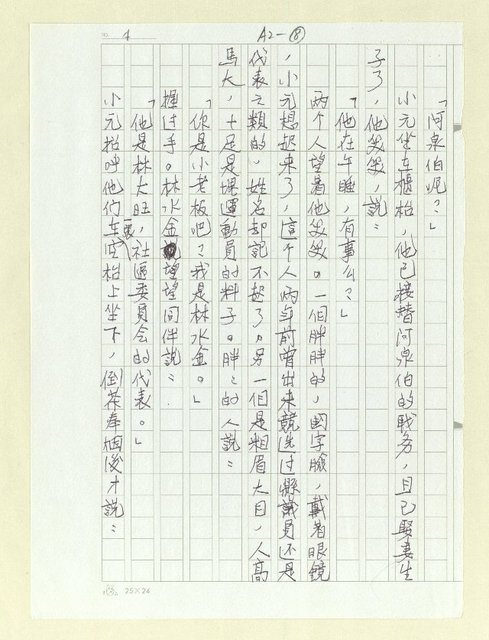 4
A2-⑧
「阿泉伯呢?」
小元坐在櫃枱,他已接替阿泉伯的职务,且已娶妻生
子了,他笑笑,説:
「他在午睡,有事么?」
两个人望着他笑笑。一個胖胖的,國字臉,戴着眼鏡
,小元想起来了,這个人两年前曾出来競选过縣議員还是
代表之類的,姓名却記不起了。另一個是粗眉大目,人高
馬大,十足是塊運動員的料子。胖々的人説:
「你是小老板吧?我是林水金。」
握过手。林水金望望同伴説:
「他是林大旺,社區委員会的代表。」
小元招呼他们在空枱上坐下,倒茶奉烟後才説:
25×24